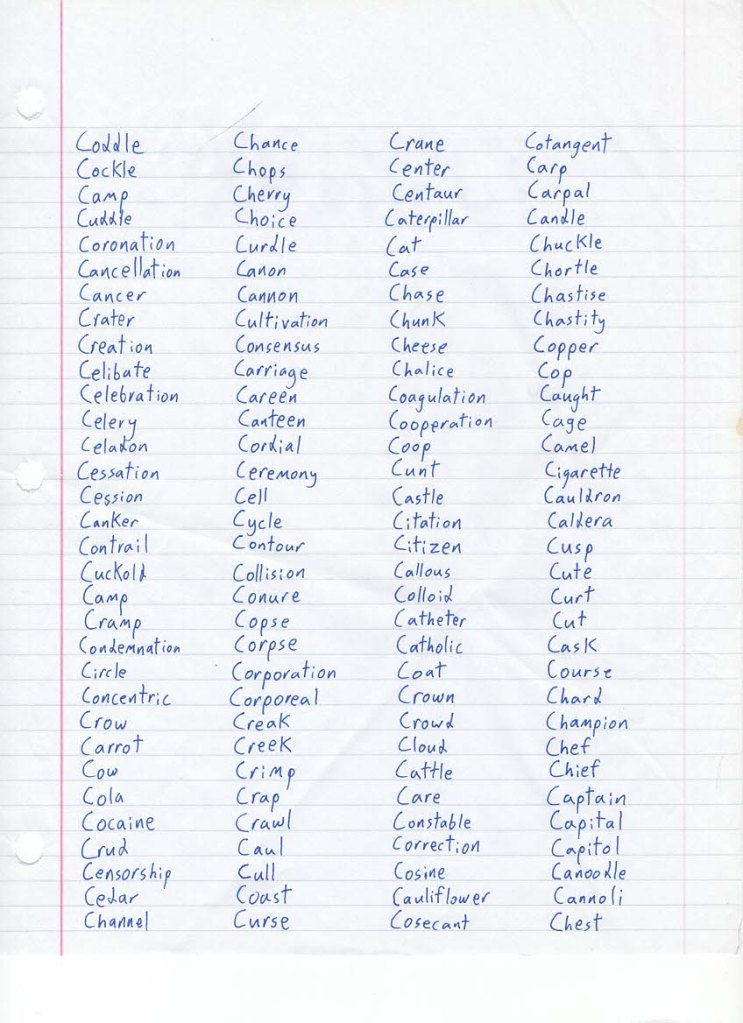 Coddle Chance Crane Cotangent
Cockle Chops Center Carp
Camp Cherry Centaur Carpal
Cuddle Choice Caterpillar Candle
Coronation Curdle Cat Chuckle
Cancellation Canon Case Chortle
Cancer Cannon Chase Chastise
Crater Cultivation Chunk Chastity
Creation Consensus Cheese Copper
Celibate Carriage Chalice Cop
Celebration Careen Coagulation Caught
Celery Canteen Cooperation Cage
Celadon Cordial Coop Camel
Cessation Ceremony Cunt Cigarette
Cession Cell Castle Cauldron
Canker Cycle Citation Caldera
Contrail Contour Citizen Cusp
Cuckold Collision Callous Cute
Camp Conure Colloid Curt
Cramp Copse Catheter Cut
Condemnation Corpse Catholic Cask
Circle Corporation Coat Course
Concentric Corporeal Crown Chard
Crow Creak Crowd Champion
Carrot Creek Cloud Chef
Cow Crimp Cattle Chief
Cola Crap Care Captain
Cocaine Crawl Constable Capital
Crud Caul Correction Capitol
Censorship Cull Cosine Canoodle
Cedar Coast Cauliflower Cannoli
Channel Curse Cosecant Chest